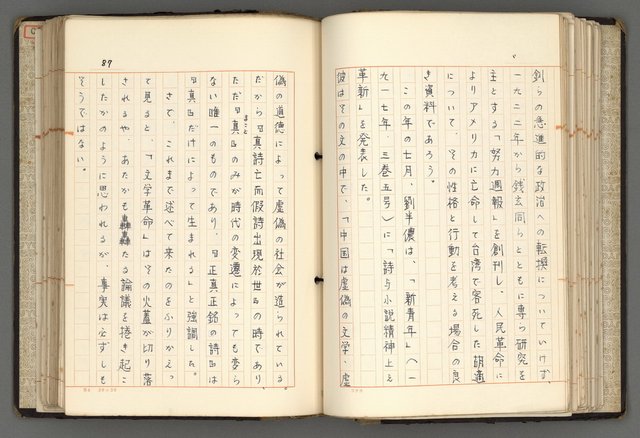 釗らの急進的な政治への転換についていけず、
一九二二年から銭玄同らとともに専ら研究を
主とする「努力週報」を創刊し、人民革命に
よりアメリカに亡命して台湾で客死した胡適
について、その性格と行動を考える場合の良
き資料であろう。
この年の七月、劉半儂は、「新青年」(一
九一七年、三巻五号)に「詩与小説精神上之
革新」を発表した。
彼はその文の中で、「中国は虚偽の文学、虚
87
偽の道徳によって虚偽の社会が造られている。
だから『真詩亡而假詩出現於世』の時であり、
ただ『真』のみが時代の変遷によっても変ら
まこと
ない唯一のものであり、『正真正銘の詩』は
『真』だけによって生まれる」と強調した。
さて、これまで述べて来たのをふりかえっ
て見ると、「文学革命」はその火蓋が切り落
されるや、あたかも轟轟たる論議を捲き起こ
したかのように思われるが、事実は必ずしも
そうではない。